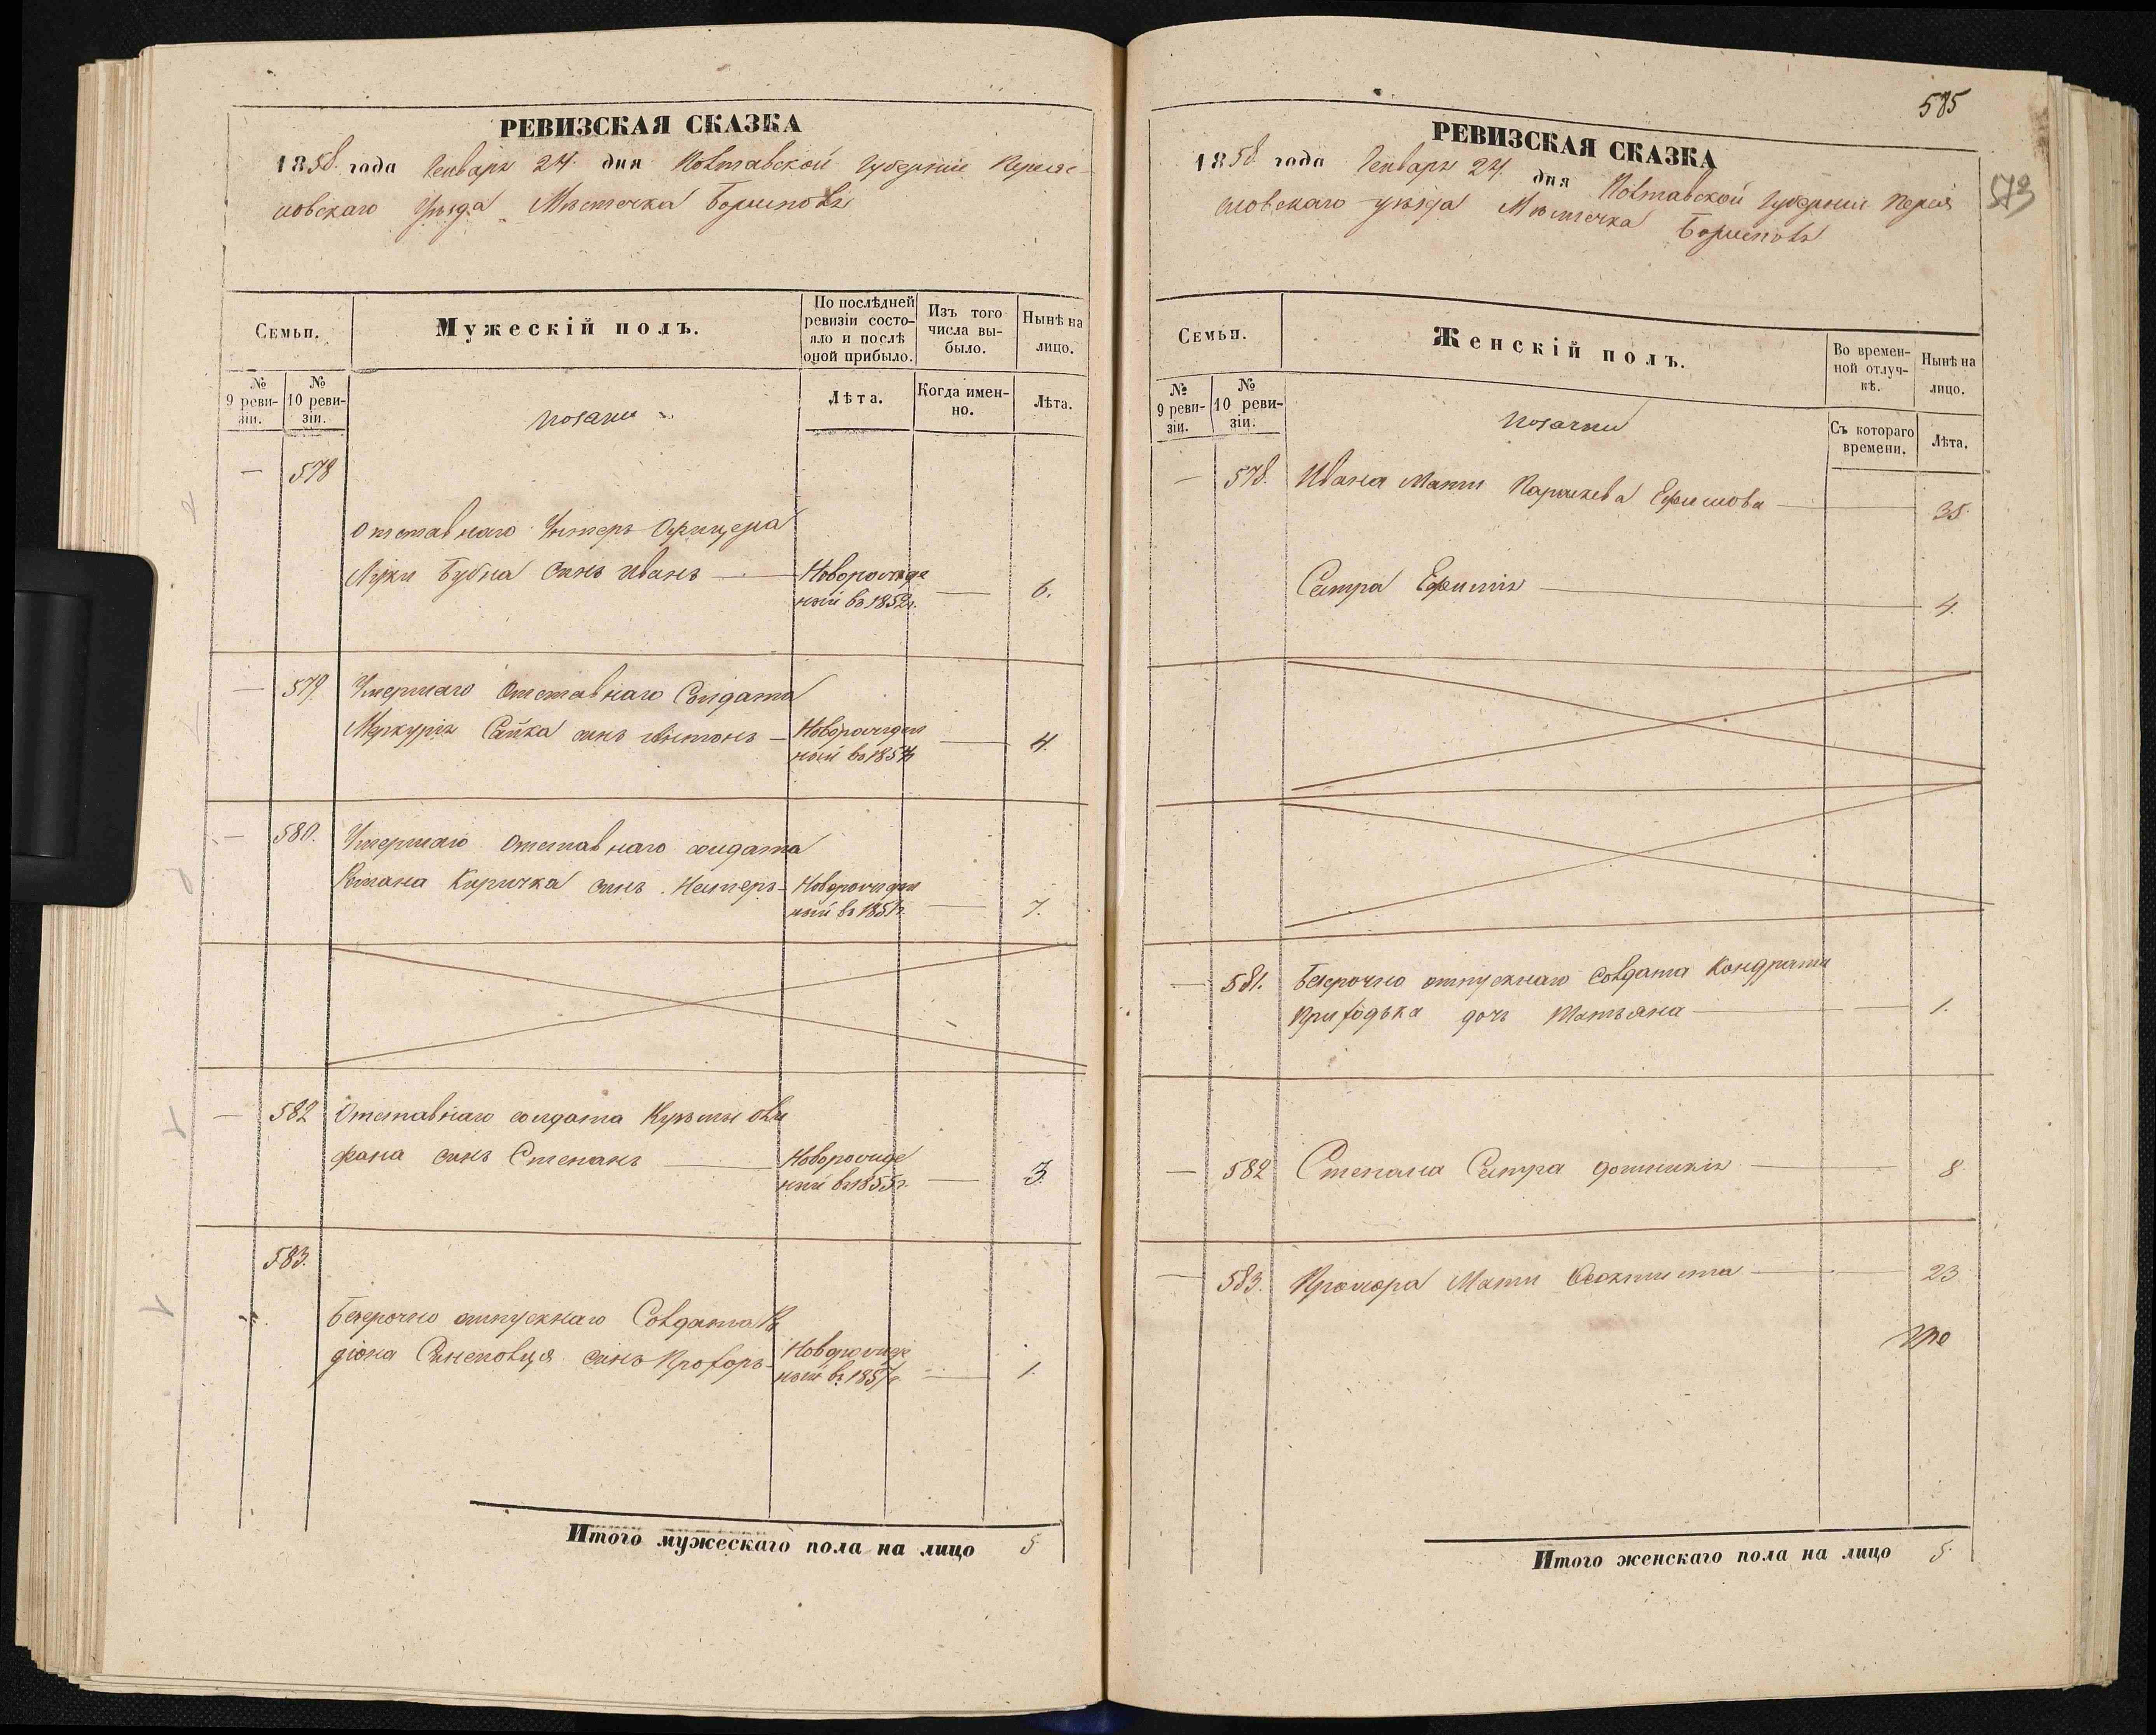 РЕВИЗСКАЯ СКАЗКА
1858 года Генваря 24 дня Полтавской Губерніи Переяс-
ловскаго Уѣзда Мѣстечка Борисполя
Семьи.
Мужескій полъ.
По послѣдней ревизіи состояло и послѣ оной прибыло.
Изъ того числа выбыло.
Нынѣ на лицо.
№ 9 ревизіи.
№ 10 ревизіи.
Козаки
Лѣта.
Когда именно.
Лѣта.
— 578
Отставнаго Унтеръ Офицера
Луки Бубна сынъ Иванъ — Новорожде
ный въ 1852г. — 6.
— 579 Умершаго Отставнаго Солдата
Меркурія Сайка сынъ Антонъ — Новорожден
ный въ 1854 — 4.
— 580. Умершаго Отставнаго солдата
Романа Киричка сынъ Несторъ — Новорожден
ный въ 1851г. — 7.
— 582 Отставнаго солдата Кузьмы Оли
фана сынъ Степанъ — Новорожде
ный въ 1855г. — 3.
583.
Безсрочно отпускнаго Солдата
діона сынъ Прохоръ — Новорожде
ный въ 1857г. — 1.
Итого мужескаго пола на лицо 5
585
573
РЕВИЗСКАЯ СКАЗКА
1858 года Генваря 24. дня Полтавской Губерніи Перея
словскаго уѣзда Мѣстечка Борисполя
Семьи.
Женскій полъ.
Во временной отлучкѣ.
Нынѣ на лицо.
№ 9 ревизіи.
№ 10 ревизіи.
Козачки
Съ котораго времени.
Лѣта.
— 578. Ивана Мати Параскева Ефимова — 38.
Сестра Ефимія — 4.
— 581. Безсрочно отпускнаго Солдата Кондрата
Приходька дочь Татьяна — 1.
— 582 Степана Сестра Домникія — 8.
— 583. Прохора Мати Феоктиста — 23.
Итого женскаго пола на лицо 5.